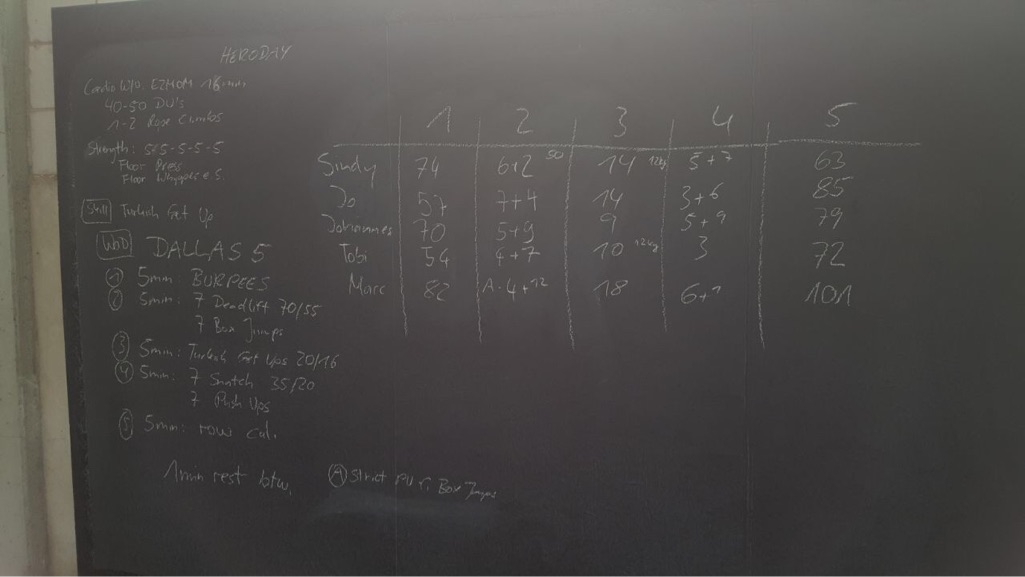 HERODAY
Cardio W/O: E2MOM 18min
40-50 DU's
1-2 Rope Climbs
Strength: 5-5-5-5-5
Floor Press
Floor
Skill Turkish Get Up
WOD DALLAS 5
1 5min: BURPEES
2 5min: 7 Deadlift 70/55
7 Box Jumps
3 5min: Turkish Get Ups 20/16
4 5min: 7 Snatch 35/20
7 Push Ups
5 5min: row cal.
1min rest btw.
A Strict Box Jumps
1 2 3 4 5
Sindy 74 6+2 50 14 12kg 5+7 63
Jo 57 7+4 14 3+6 85
Johannes 70 5+9 9 5+9 79
Tobi 54 4+7 10 12kg 3 72
Marc 82 A: 4+12 18 6+1 101